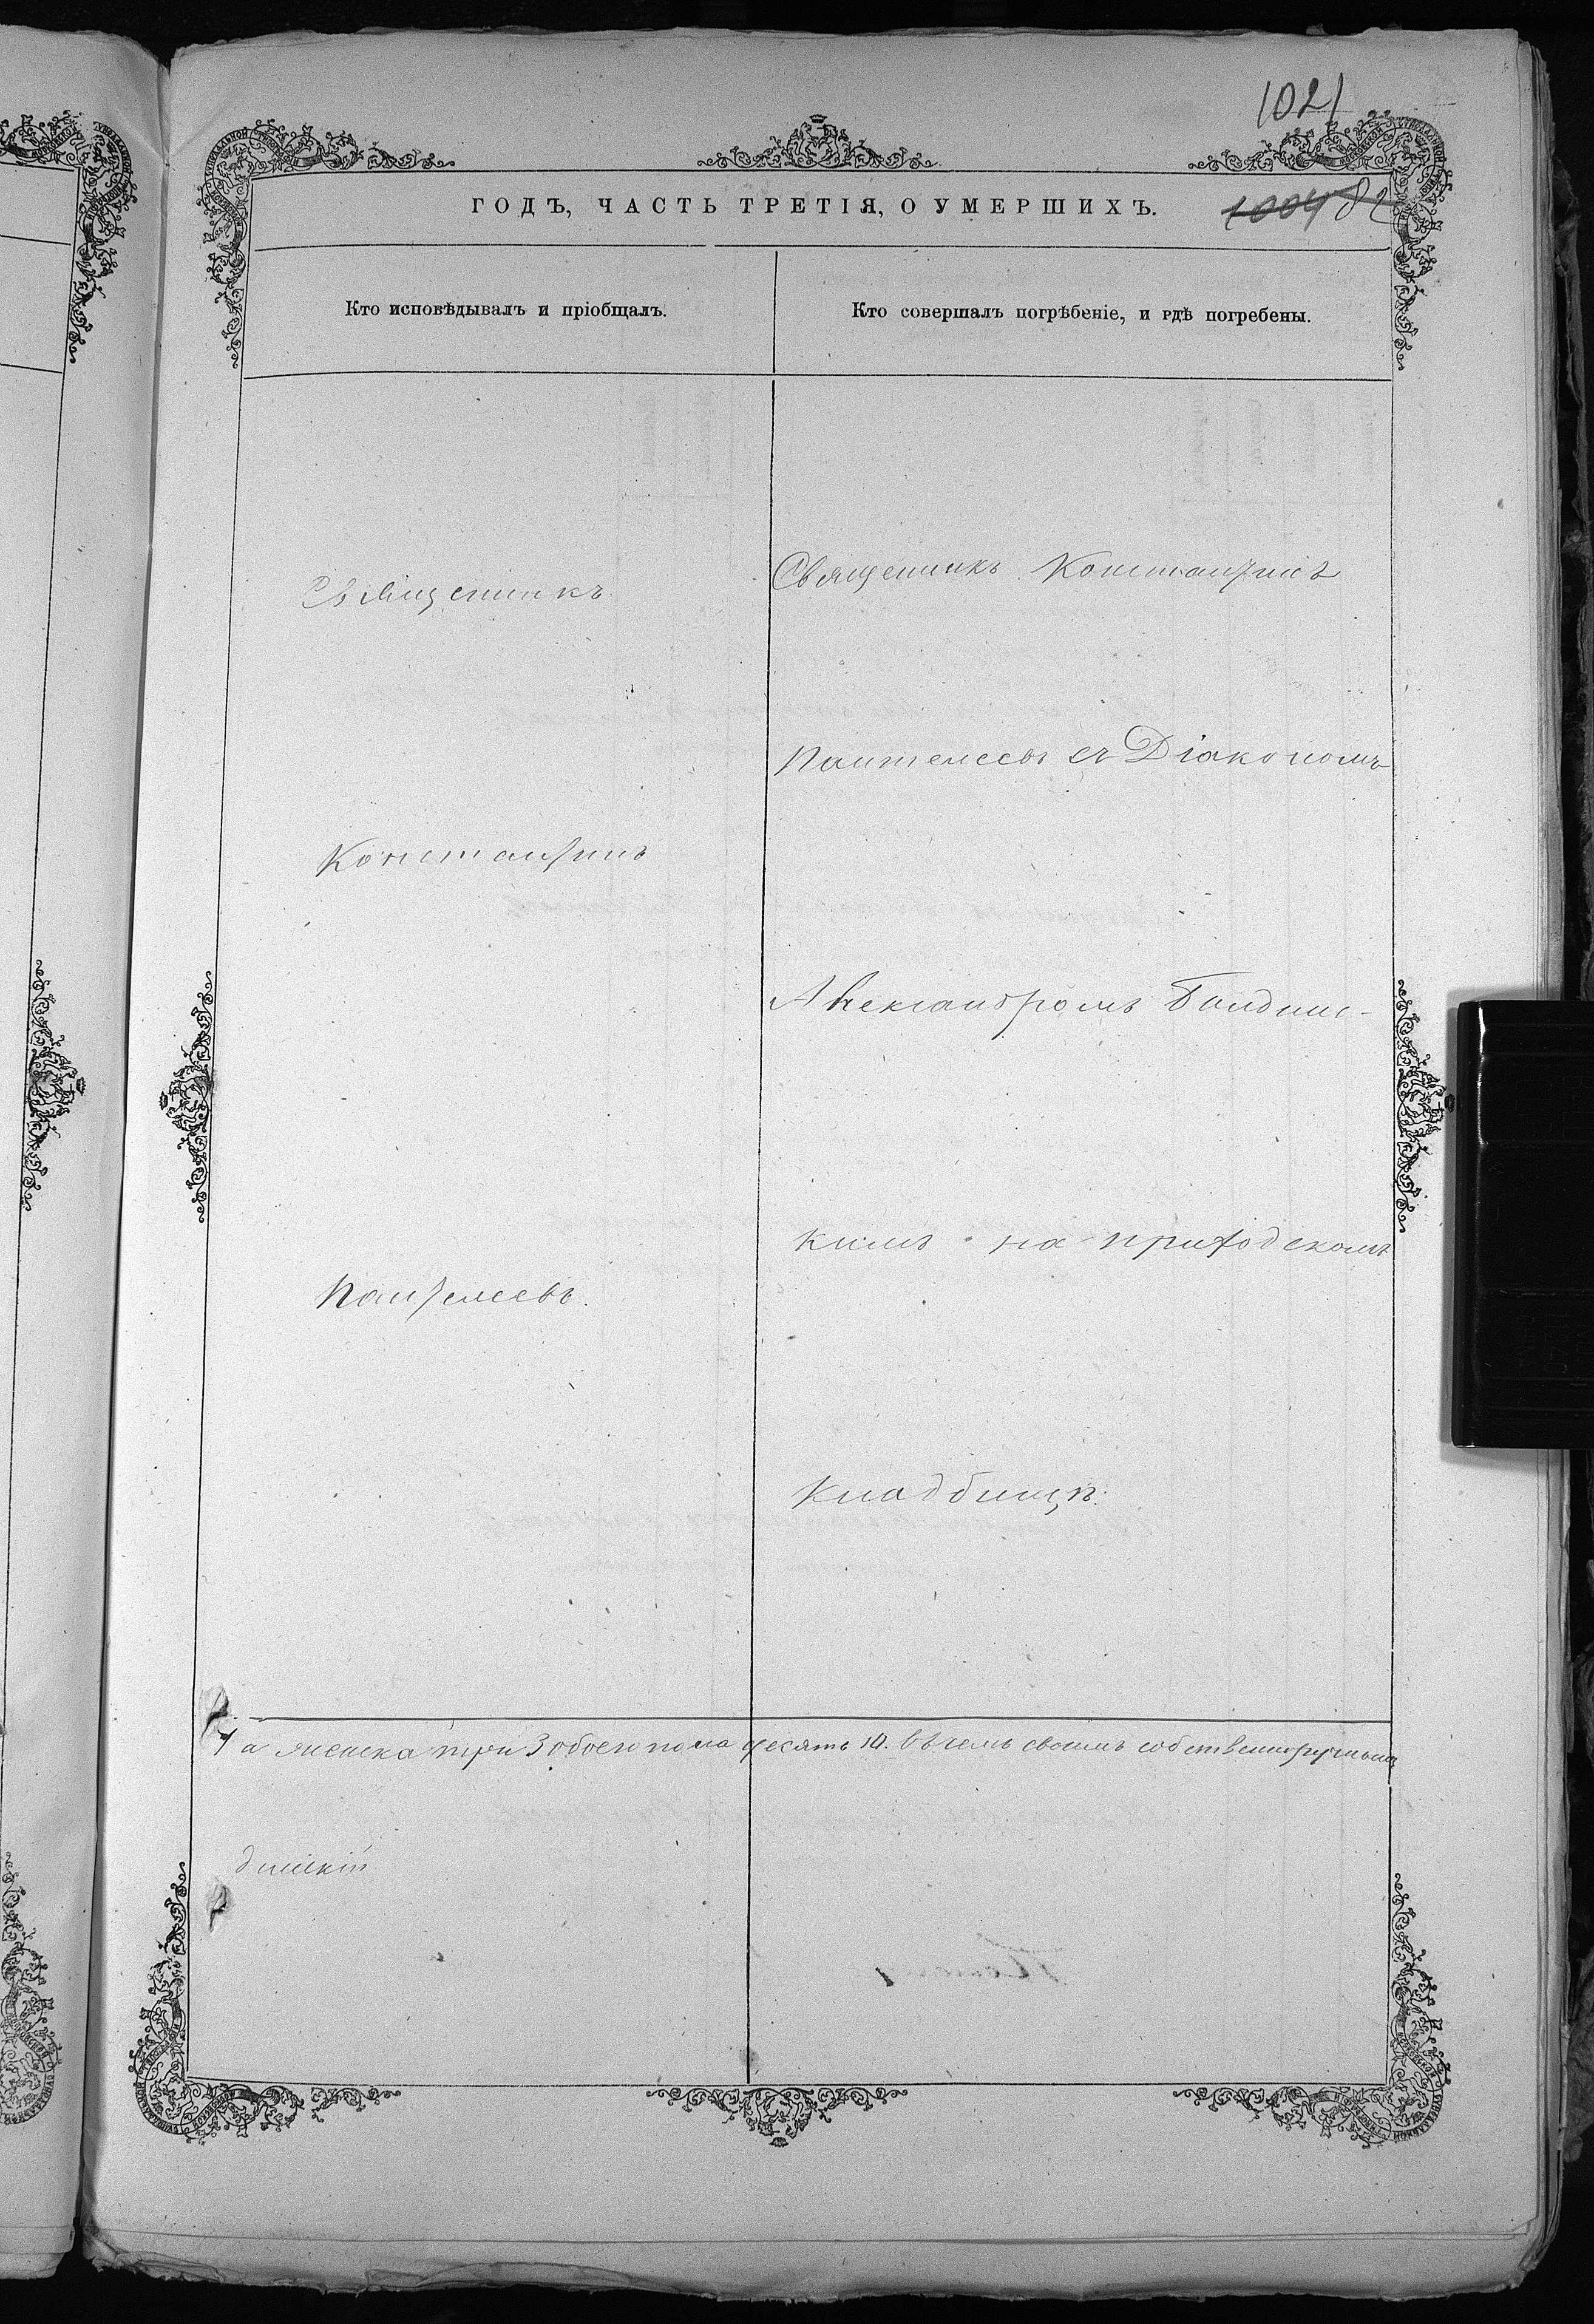 1021
ГОДЪ, ЧАСТЬ ТРЕТІЯ, О УМЕРШИХЪ.
Кто исповѣдывалъ и пріобщалъ.
Кто совершалъ погрѣбеніе, и гдѣ погребены.
Священникъ
Константинъ
Пантелеевъ.
Священникъ Константинъ
Пантелеевъ съ Діакономъ
Александромъ Бандин-
кимъ на приходскомъ
кладбищѣ.
7 а женска три 3 обоего пола десять 10. Въ чемъ своимъ собственноручным
динскій